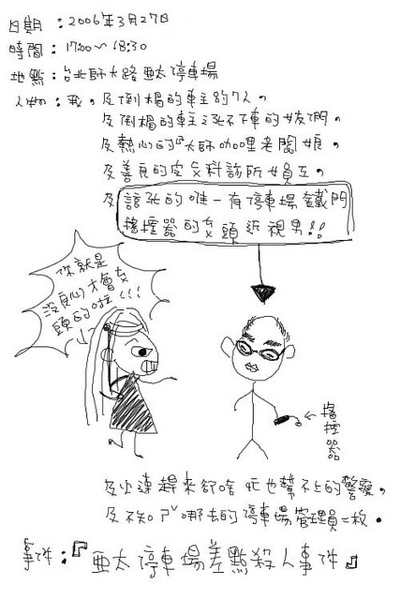 日期：2006年3月27日
時間：17:00～18:30
地點：台北師大路亞太停車場
人物：我。及倒楣的車主約7人。
及倒楣的車主之死不下車的女友們。
及熱心的『大師咖哩老闆娘。
及善良的皮文科診所女員工。
及
該死的唯一有停車場鐵門
搖控器的禿頭近視男!!
你就是
沒良心才會禿
頭的啦!!!
←搖
控
器
及火速趕來卻啥忙也幫不上的警察。
及不知ㄕˇ哪去的停車場管理員二枚。
事件：『亞太停車場差點殺人事件』